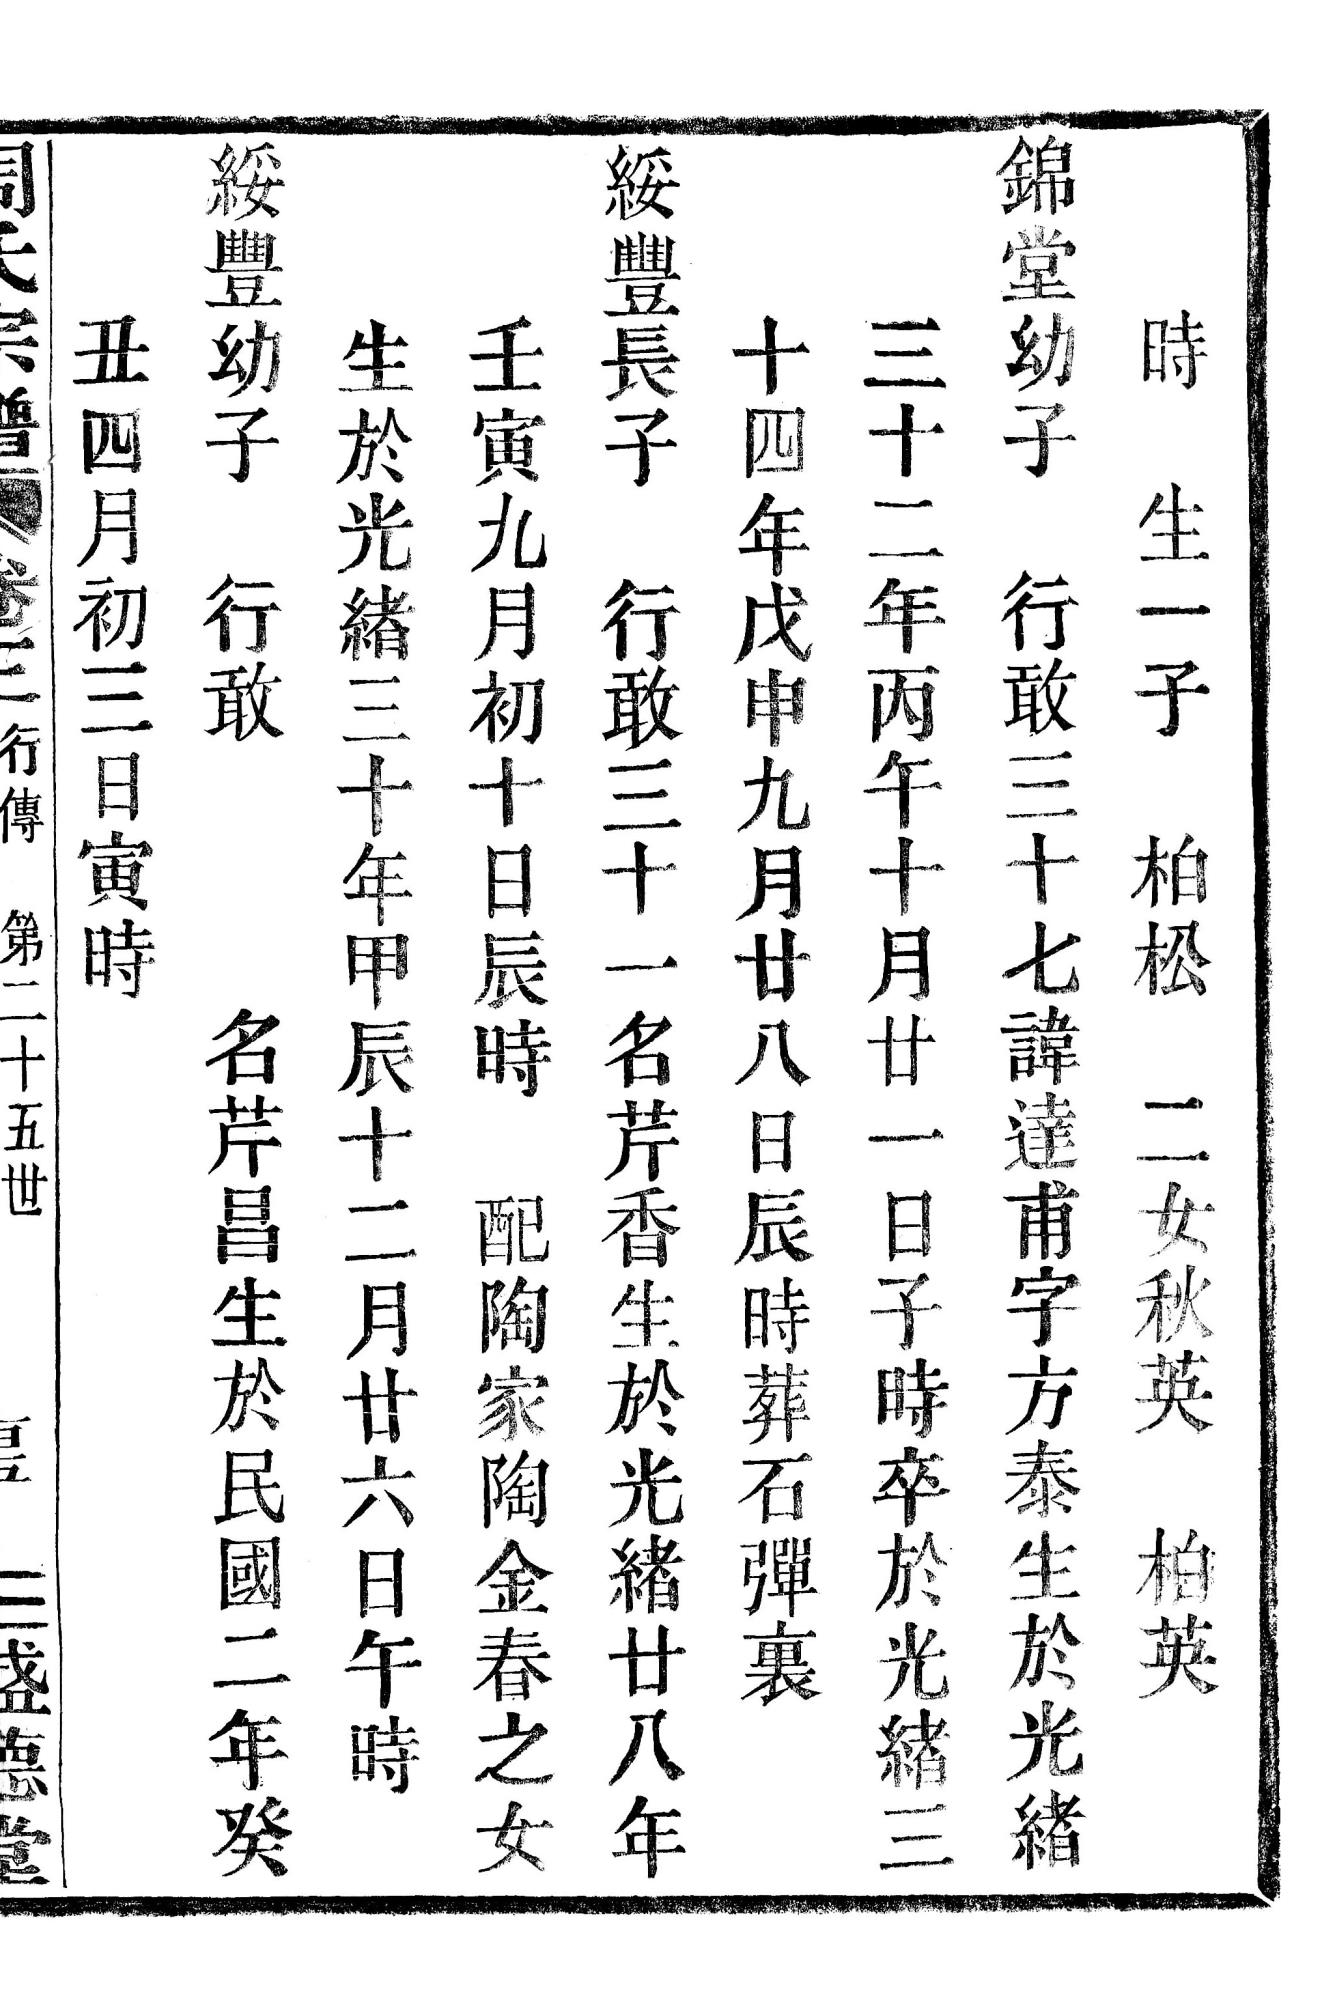 時　生一子　柏松　二女秋英　柏英
錦堂幼子　行敢三十七諱達甫字方泰生於光緒
三十二年丙午十月廿一日子時卒於光緒三
十四年戊申九月廿八日辰時葬石彈裏
綏豐長子　行敢三十一名芹香生於光緒廿八年
壬寅九月初十日辰時　配陶家陶金春之女
生於光緒三十年甲辰十二月廿六日午時
綏豐幼子　行敢　　　名芹昌生於民國二年癸
丑四月初三日寅時
周氏宗譜　卷三　行傳　第二十五世　三盛德堂